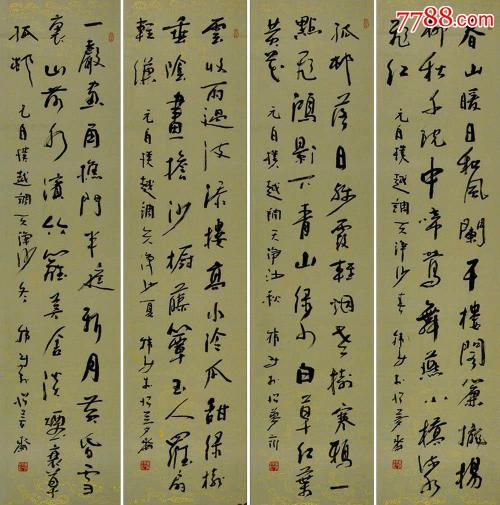 7788.com
春山暖日和風闌干樓閣簾櫳楊
柳秋千院中啼鶯舞燕小橋流水
飛紅 元白樸越調天淨沙春
孤村落日殘霞輕烟老樹寒鴉一
點飛鴻影下青山綠水白草紅葉
黃花 元白樸越調天淨沙秋
雲收雨過波添樓高水冷瓜甜綠樹
垂陰畫檐沙櫥藤簟玉人羅扇
輕縑 元白樸越調天淨沙夏
一聲畫角樵門半庭新月黃昏雪
裏山前水濱竹籬茅舍淡煙衰草
孤村 元白樸越調天淨沙冬